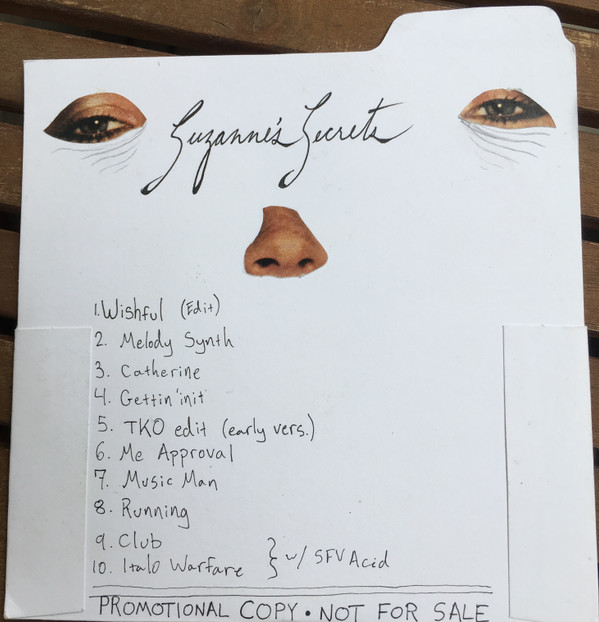 Suzanne's Secrets
1. Wishful (Edit)
2. Melody Synth
3. Catherine
4. Gettin 'init
5. TKO edit (early vers.)
6. Me Approval
7. Music Man
8. Running
9. Club
10. Italo Warfare } w/ SFV Acid
PROMOTIONAL COPY • NOT FOR SALE